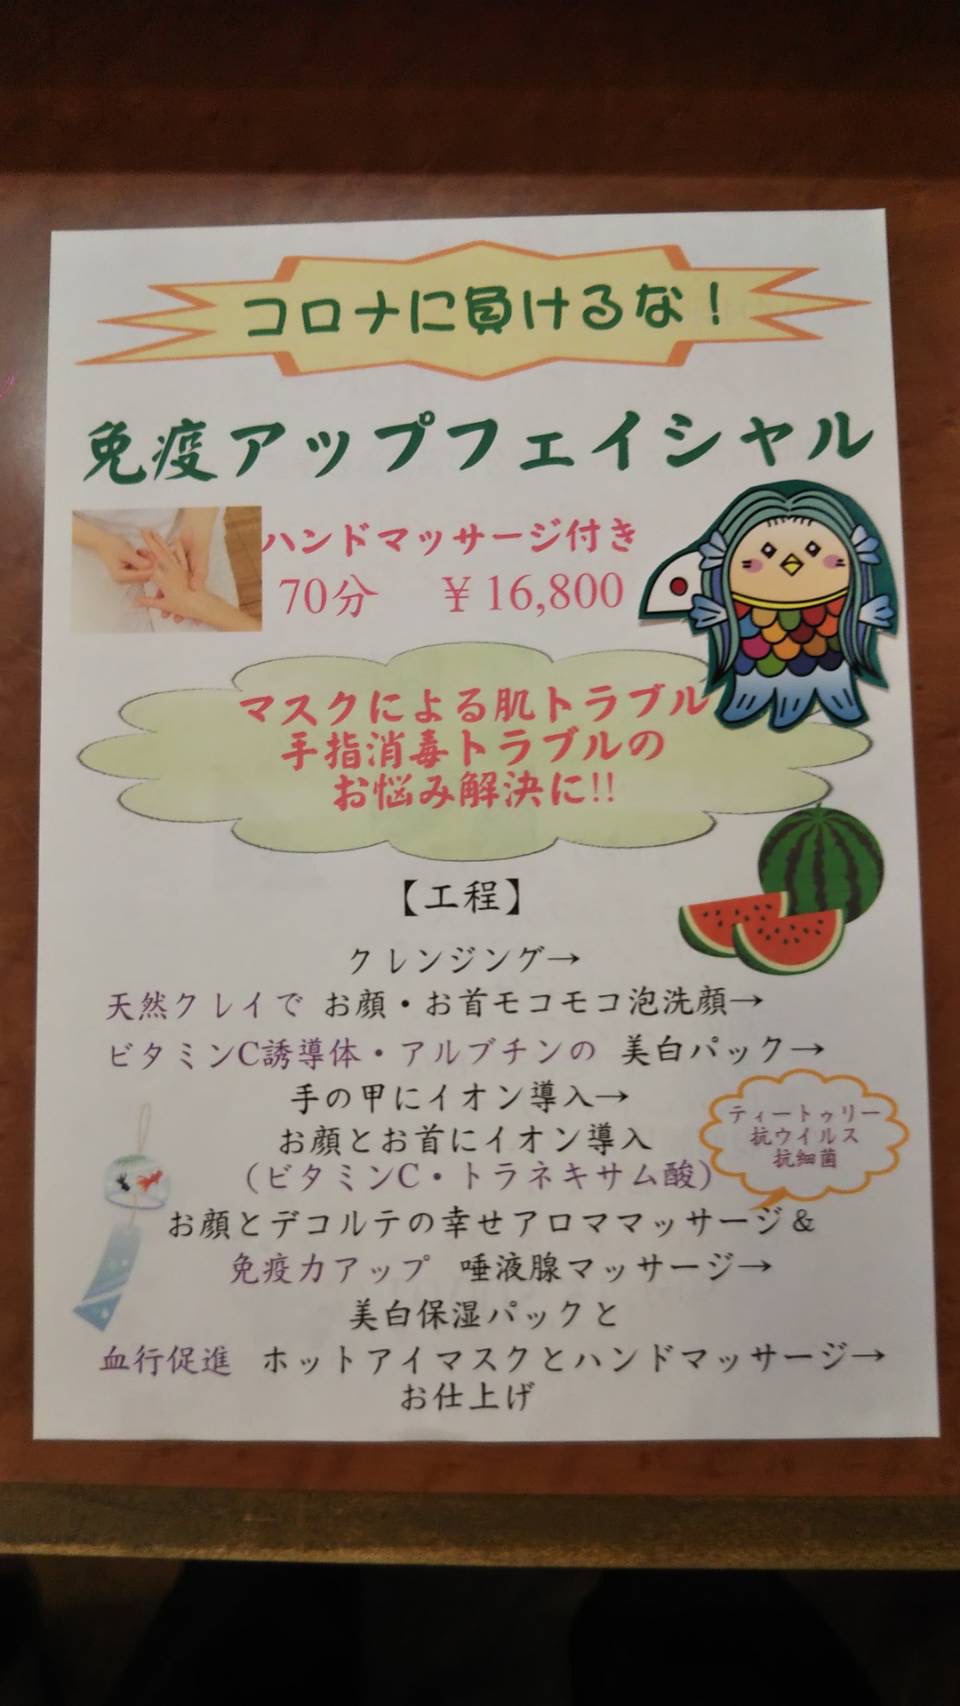 コロナに負けるな!
免疫アップフェイシャル
ハンドマッサージ付き
70分 ¥16,800
マスクによる肌トラブル
手指消毒トラブルの
お悩み解決に!!
【工程】
クレンジング→
天然クレイで お顔・お首モコモコ泡洗顔→
ビタミンC誘導体・アルブチンの 美白パック→
手の甲にイオン導入→
お顔とお首にイオン導入
(ビタミンC・トラネキサム酸)
ティートゥリー
抗ウイルス
抗細菌
お顔とデコルテの幸せアロママッサージ&
免疫力アップ 唾液腺マッサージ→
美白保湿パックと
血行促進 ホットアイマスクとハンドマッサージ→
お仕上げ